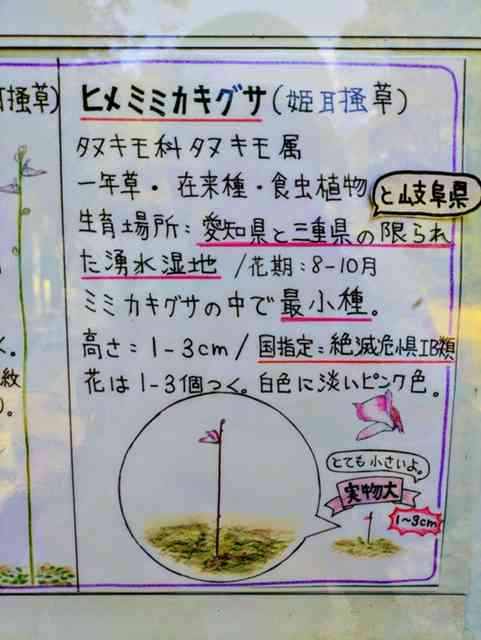 耳掻草)
ヒメミミカキグサ(姫耳掻草)
タヌキモ科タヌキモ属
一年草・在来種・食虫植物
と岐阜県
生育場所:愛知県と三重県の限られ
た湧水湿地/花期:8-10月
ミミカキグサの中で最小種。
高さ:1-3cm/国指定:絶滅危惧IB類
花は1-3個つく。白色に淡いピンク色。
く。
紋
)。
とても小さいよ。
実物大
1~3cm